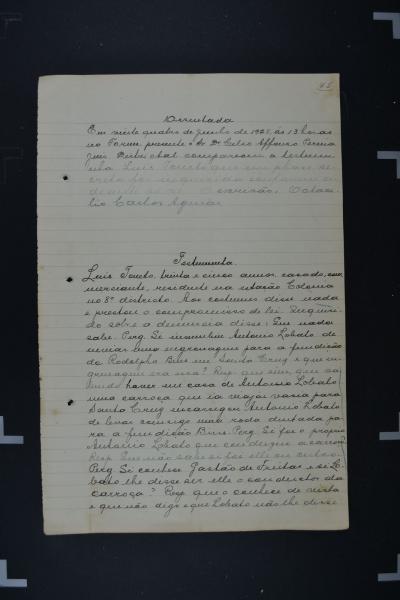 45
Assentada
Em vinte quatro de Junho de 1928, ás 13 horas
no Forum, presente o Sr. Dr. Celso Affonso Pereira
Juiz Districtal compareceu a testemu-
nha Luis
creta foi inquirida como
deante se vê. O escrivão, Octaci-
lio Carlos Aguiar
Testemunha
Luis trinta e cinco annos, casado, com-
merciante, residente na estação Colonia
no 8º districto. Aos costumes disse nada
e prestou o compromisso de lei. Inquiri-
do sobre a denuncia disse: Que nada
sabe. Perg. Si Antonio Lobato de
uma engrenagem para a fundição
de Rodolpho Bins em Santa Cruz e que en-
grenagem era essa? Resp. que sim, que sa-
bendo haver em casa de Antonio Lobato
uma carroça que ia viajar vazia para
Santa Cruz encarregou Antonio Lobato
de levar comsigo uma roda dentada pa-
ra a fundição Bins. Perg. Si foi o proprio
Antonio Lobato que conduziu a carroça
Resp. Que não sabe si foi elle ou outro.
Perg. Si conhece Gastão de Freitas e si Lo-
bato lhe disse ser elle o conductor da
carroça? Resp. que o conhece de vista
e que não digo e que Lobato não lhe disse